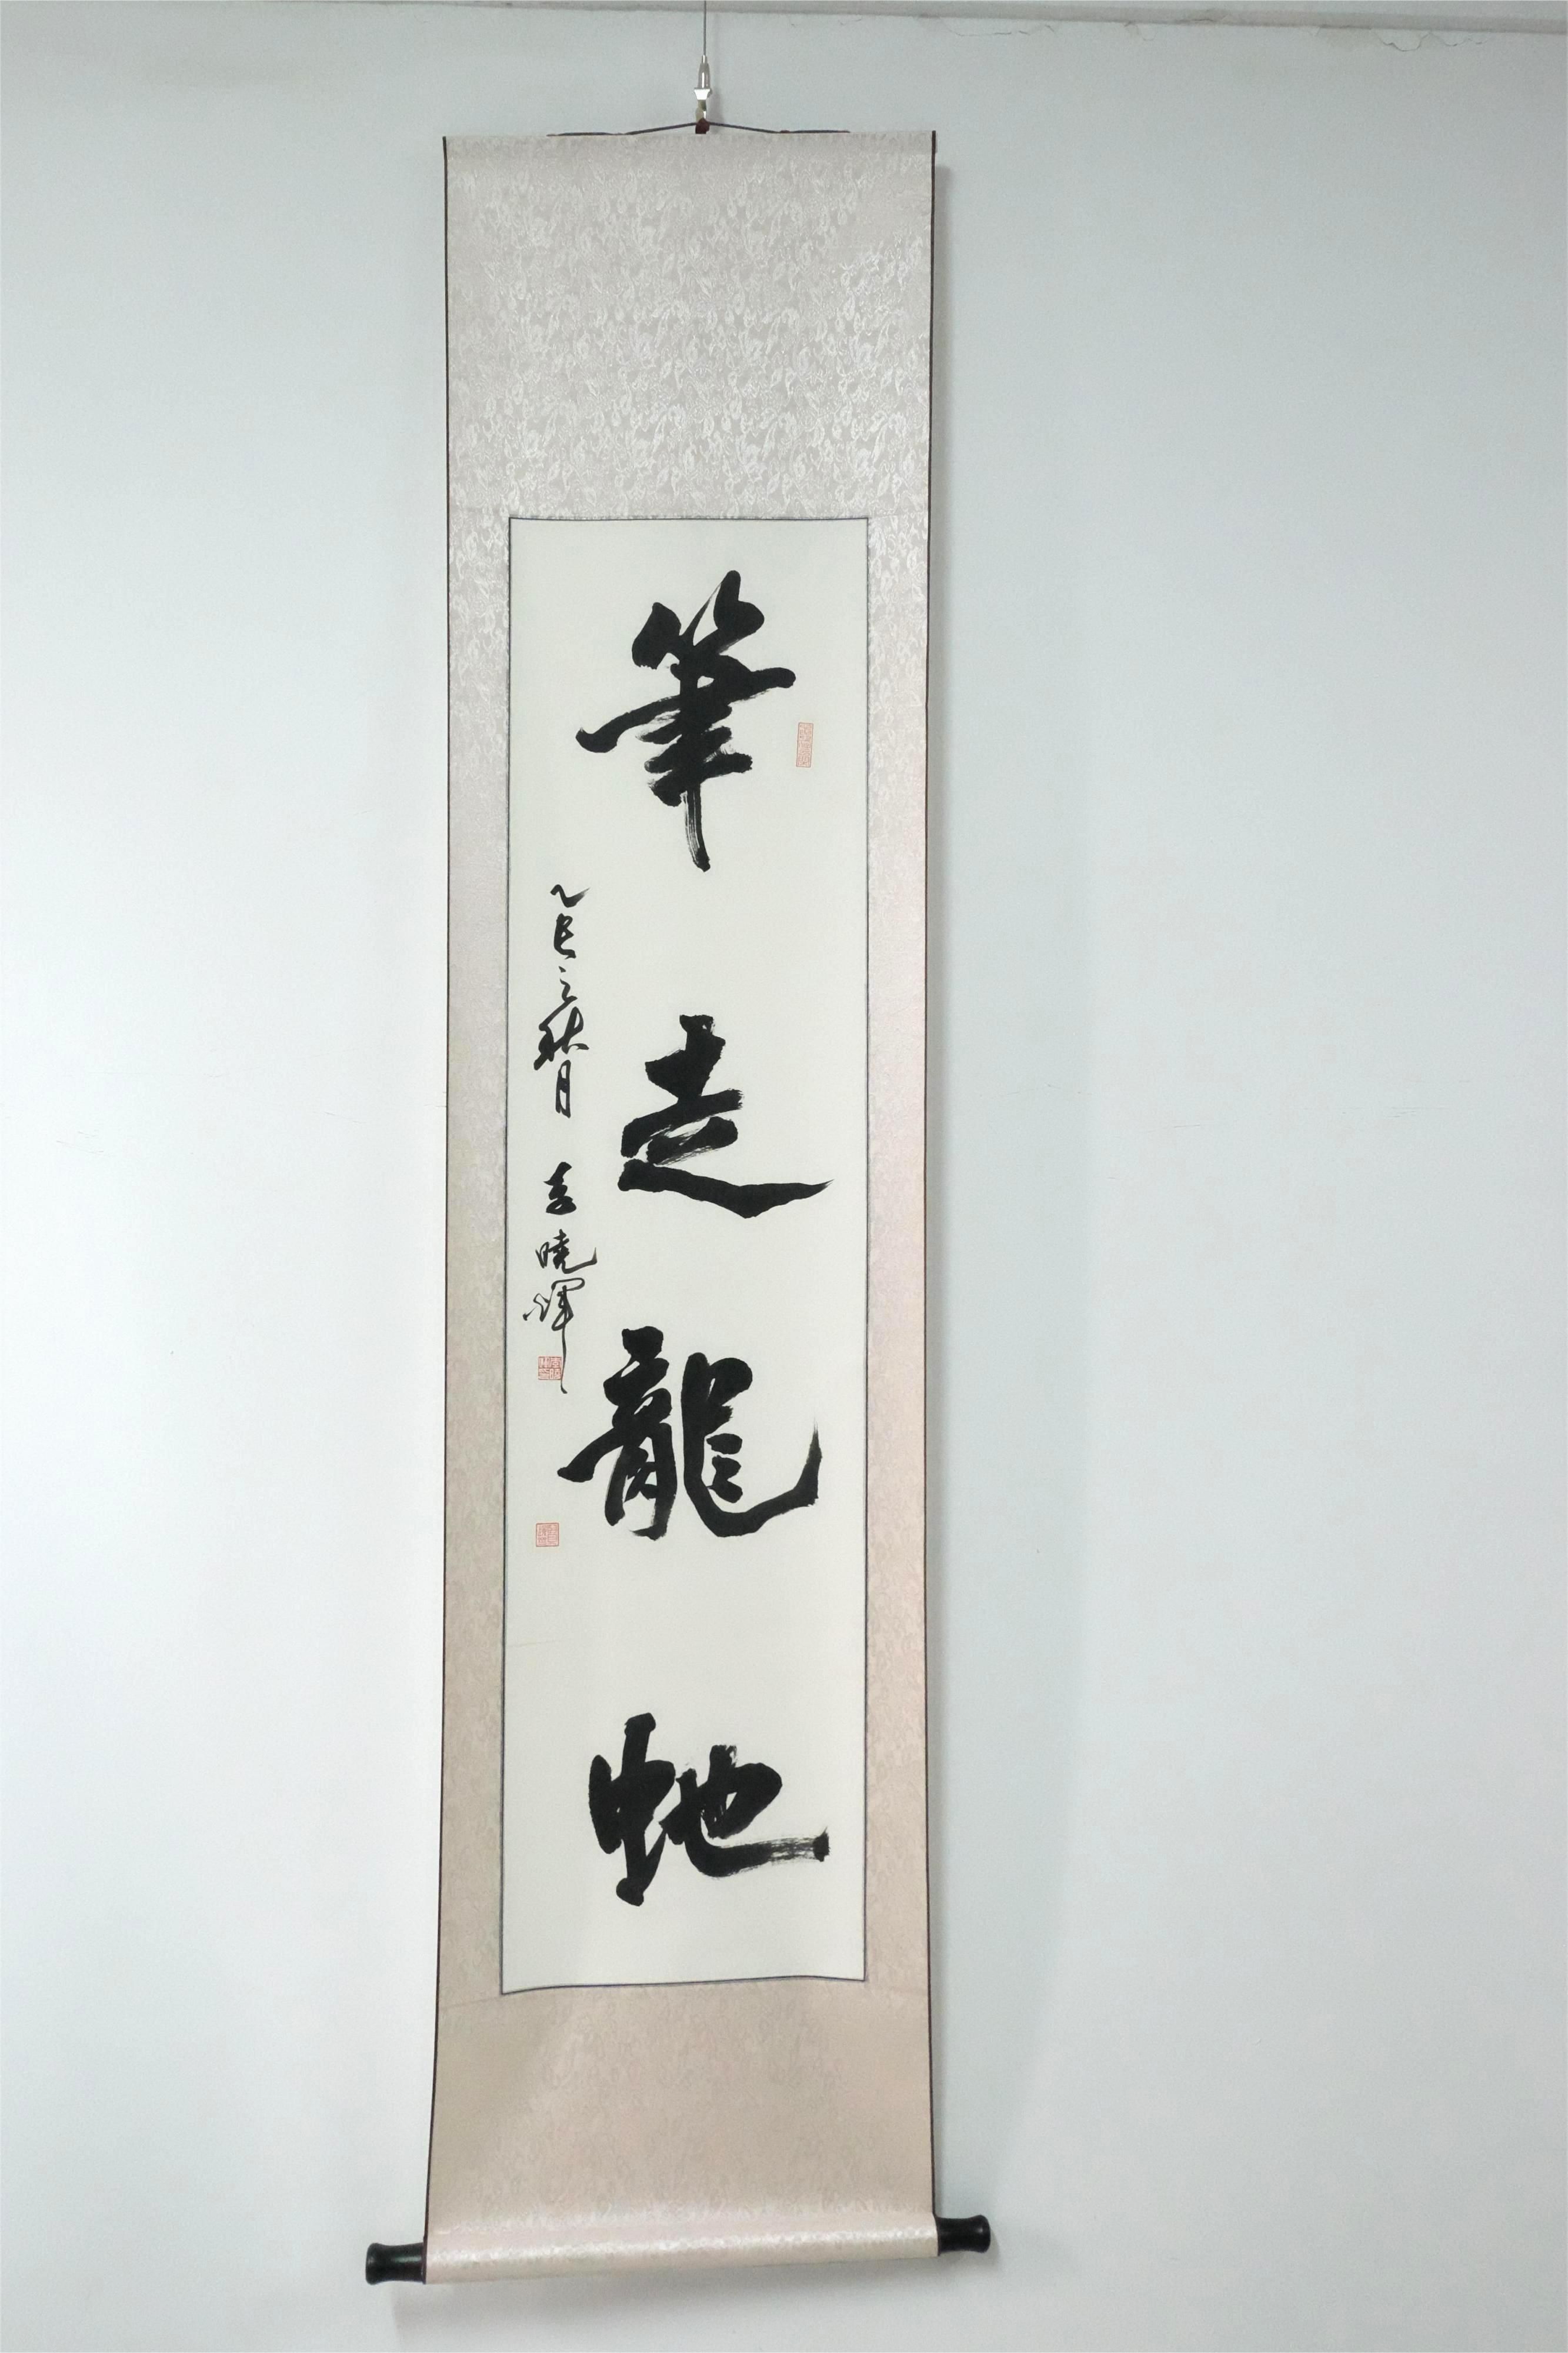 筆走龍虵
乙巳之秋月 李曉輝